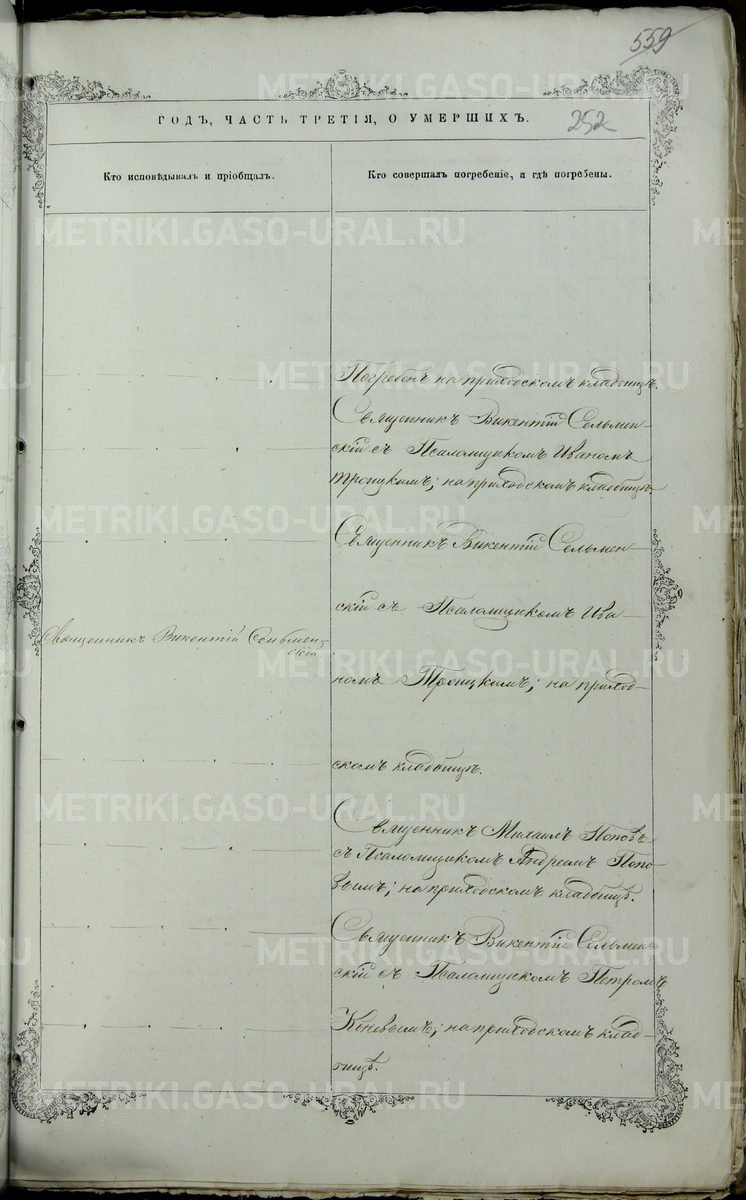 559
ГОДЪ, ЧАСТЬ ТРЕТІЯ, О УМЕРШИХЪ.
252
Кто исповѣдывалъ и пріобщалъ.
Кто совершалъ погребеніе, и гдѣ погребены.
Погребенъ на приходскомъ кладбищѣ.
Священникъ Викентій Сельмен-
скій съ Псаломщикомъ Иваномъ
Троицкимъ; на приходскомъ кладбищѣ.
Священникъ Викентій Сельмен-
скій съ Псаломщикомъ Ива-
Священникъ Викентій Сельмен-
скій
номъ Троицкимъ; на приход-
скомъ кладбищѣ.
Священникъ Михаилъ Поповъ
съ Псаломщикомъ Андреемъ Попо-
вымъ; на приходскомъ кладбищѣ.
Священникъ Викентій Сельмен-
скій съ Псаломщикомъ Петромъ
Коневымъ; на приходскомъ клад-
бищѣ.
METRIKI.GASO-URAL.RU